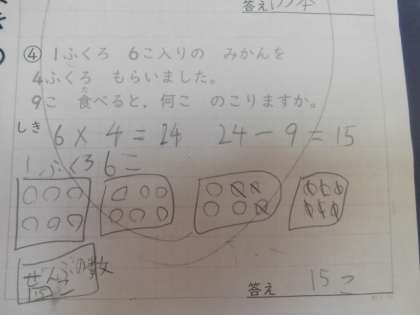 答え
④ 1ふくろ 6こ入りの みかんを
4ふくろ もらいました。
9こ 食べると、何こ のこりますか。
しき 6×4=24 24-9=15
1ふくろ6こ
ぜんぶの数
15
答え 15こ